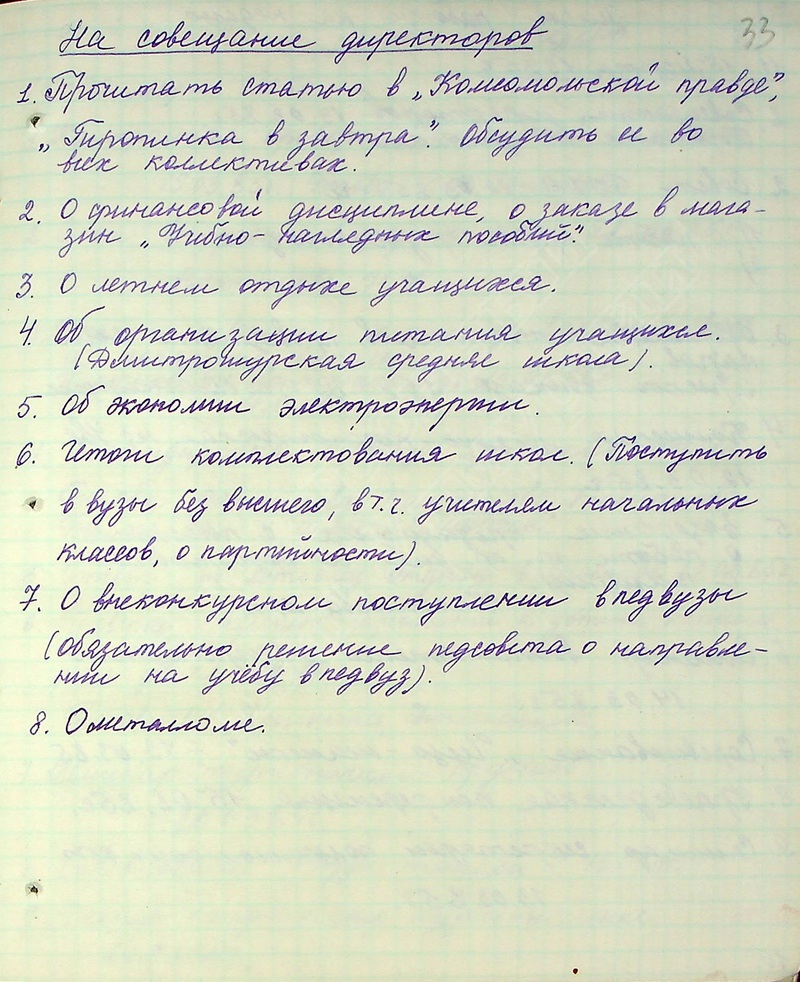 33
На совещание директоров
1. Прочитать статью в „Комсомольской правде",
„Тропинка в завтра". Обсудить ее во
всех коллективах.
2. О финансовой дисциплине, о заказе в мага-
зин „Учебно-наглядных пособий".
3. О летнем отдыхе учащихся.
4. Об организации питания учащихся.
(Дмитрошурская средняя школа).
5. Об экономии электроэнергии.
6. Итоги комплектования школ. (Поступить
в вузы без высшего, в т.ч. учителям начальных
классов, о партийности).
7. О внеконкурсном поступлении в педвузы
(обязательно решение педсовета о направле-
нии на учёбу в педвуз).
8. О металломе.